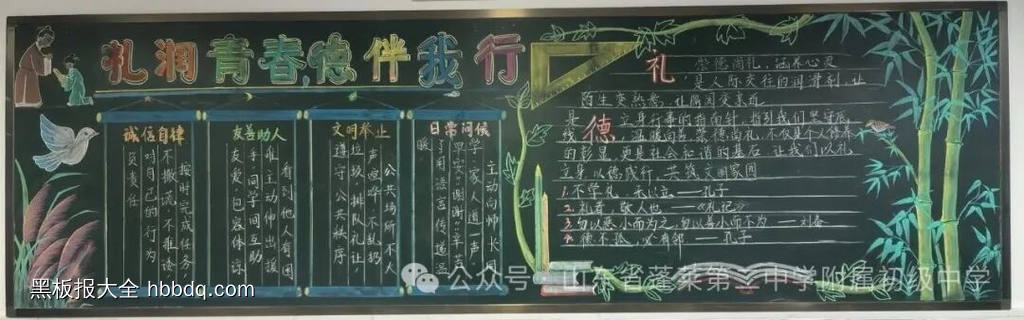 礼润青春,德伴我行
诚信自律
按时完成任务,
不撒谎,不推诿
对自己的行为
负责任
友善助人
看到他人有困
难主动伸出援
手,同学间互助
友爱,包容体谅
文明举止
公共场所不大
声喧哗,不乱扔
垃圾,排队礼让,
遵守公共秩序
日常问候
主动向师长、同
学、家人道一声
早安,谢谢,辛苦
了用语言传递温
暖
礼 崇德尚礼,涵养心灵
是人际交往的润滑剂,让
陌生变熟悉,礼
是 德 立身行事的指南针,指引我们坚守底
线,温暖向善,崇德尚礼,不仅是个人修养
的彰显,更是社会和谐的基石,让我们以礼
立身,以德践行,共筑文明家园
1.不学礼,无以立——孔子
2.礼者,敬人也——《礼记》
3.勿以恶小而为之,勿以善小而不为——刘备
4.德不孤,必有邻——孔子
公众号·山东省蓬莱第二中学附属初级中学
黑板报大全 hbbdq.com